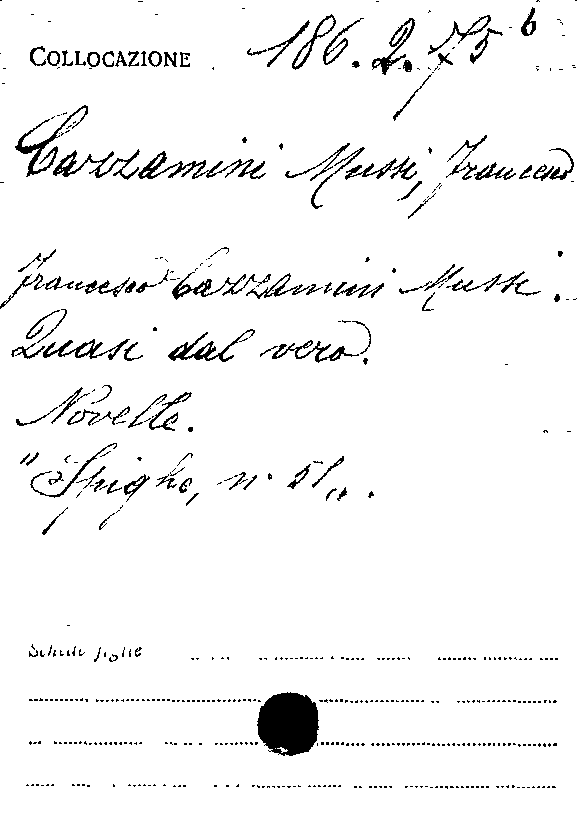 COLLOCAZIONE 186.2.75 b
Cazzamini Mussi, Francesco
Francesco Cazzamini Mussi.
Quasi dal vero.
Novelle.
"Spighe, n. 51„.
Schede figlie